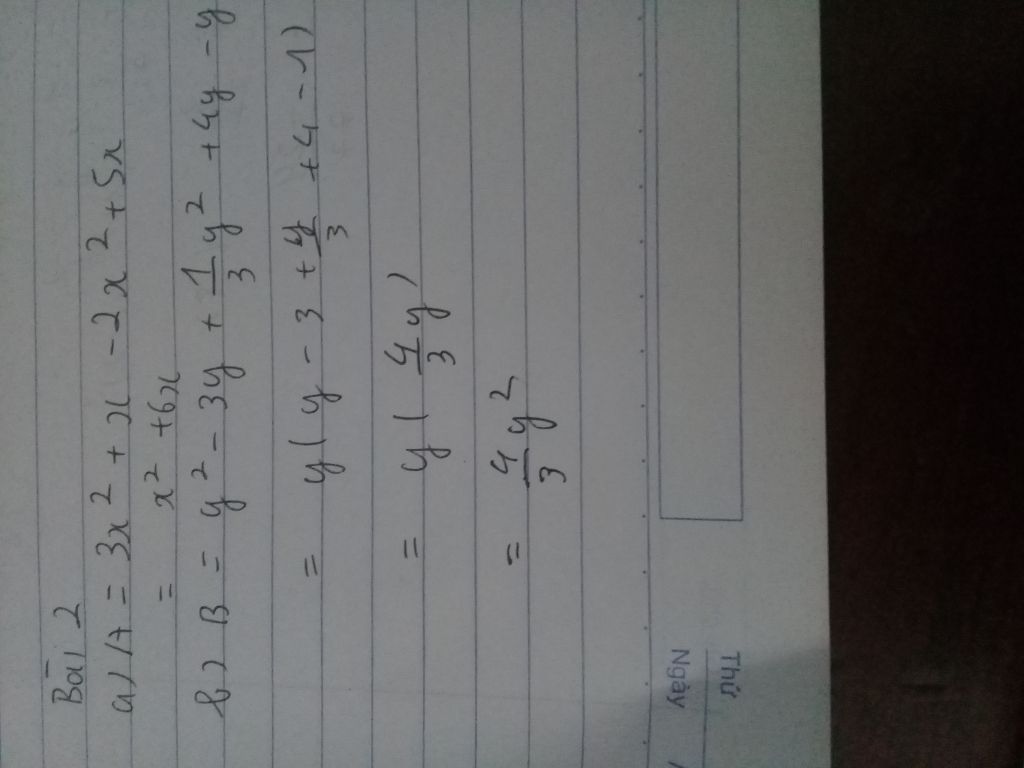 Bài 2
a) A = 3x² + x - 2x² + 5x
= x² + 6x
b) B = y² - 3y + 1/3 y² + 4y - y
= y(y - 3 + y/3 + 4 - 1)
= y(4/3 y)
= 4/3 y²
Thứ
Ngày